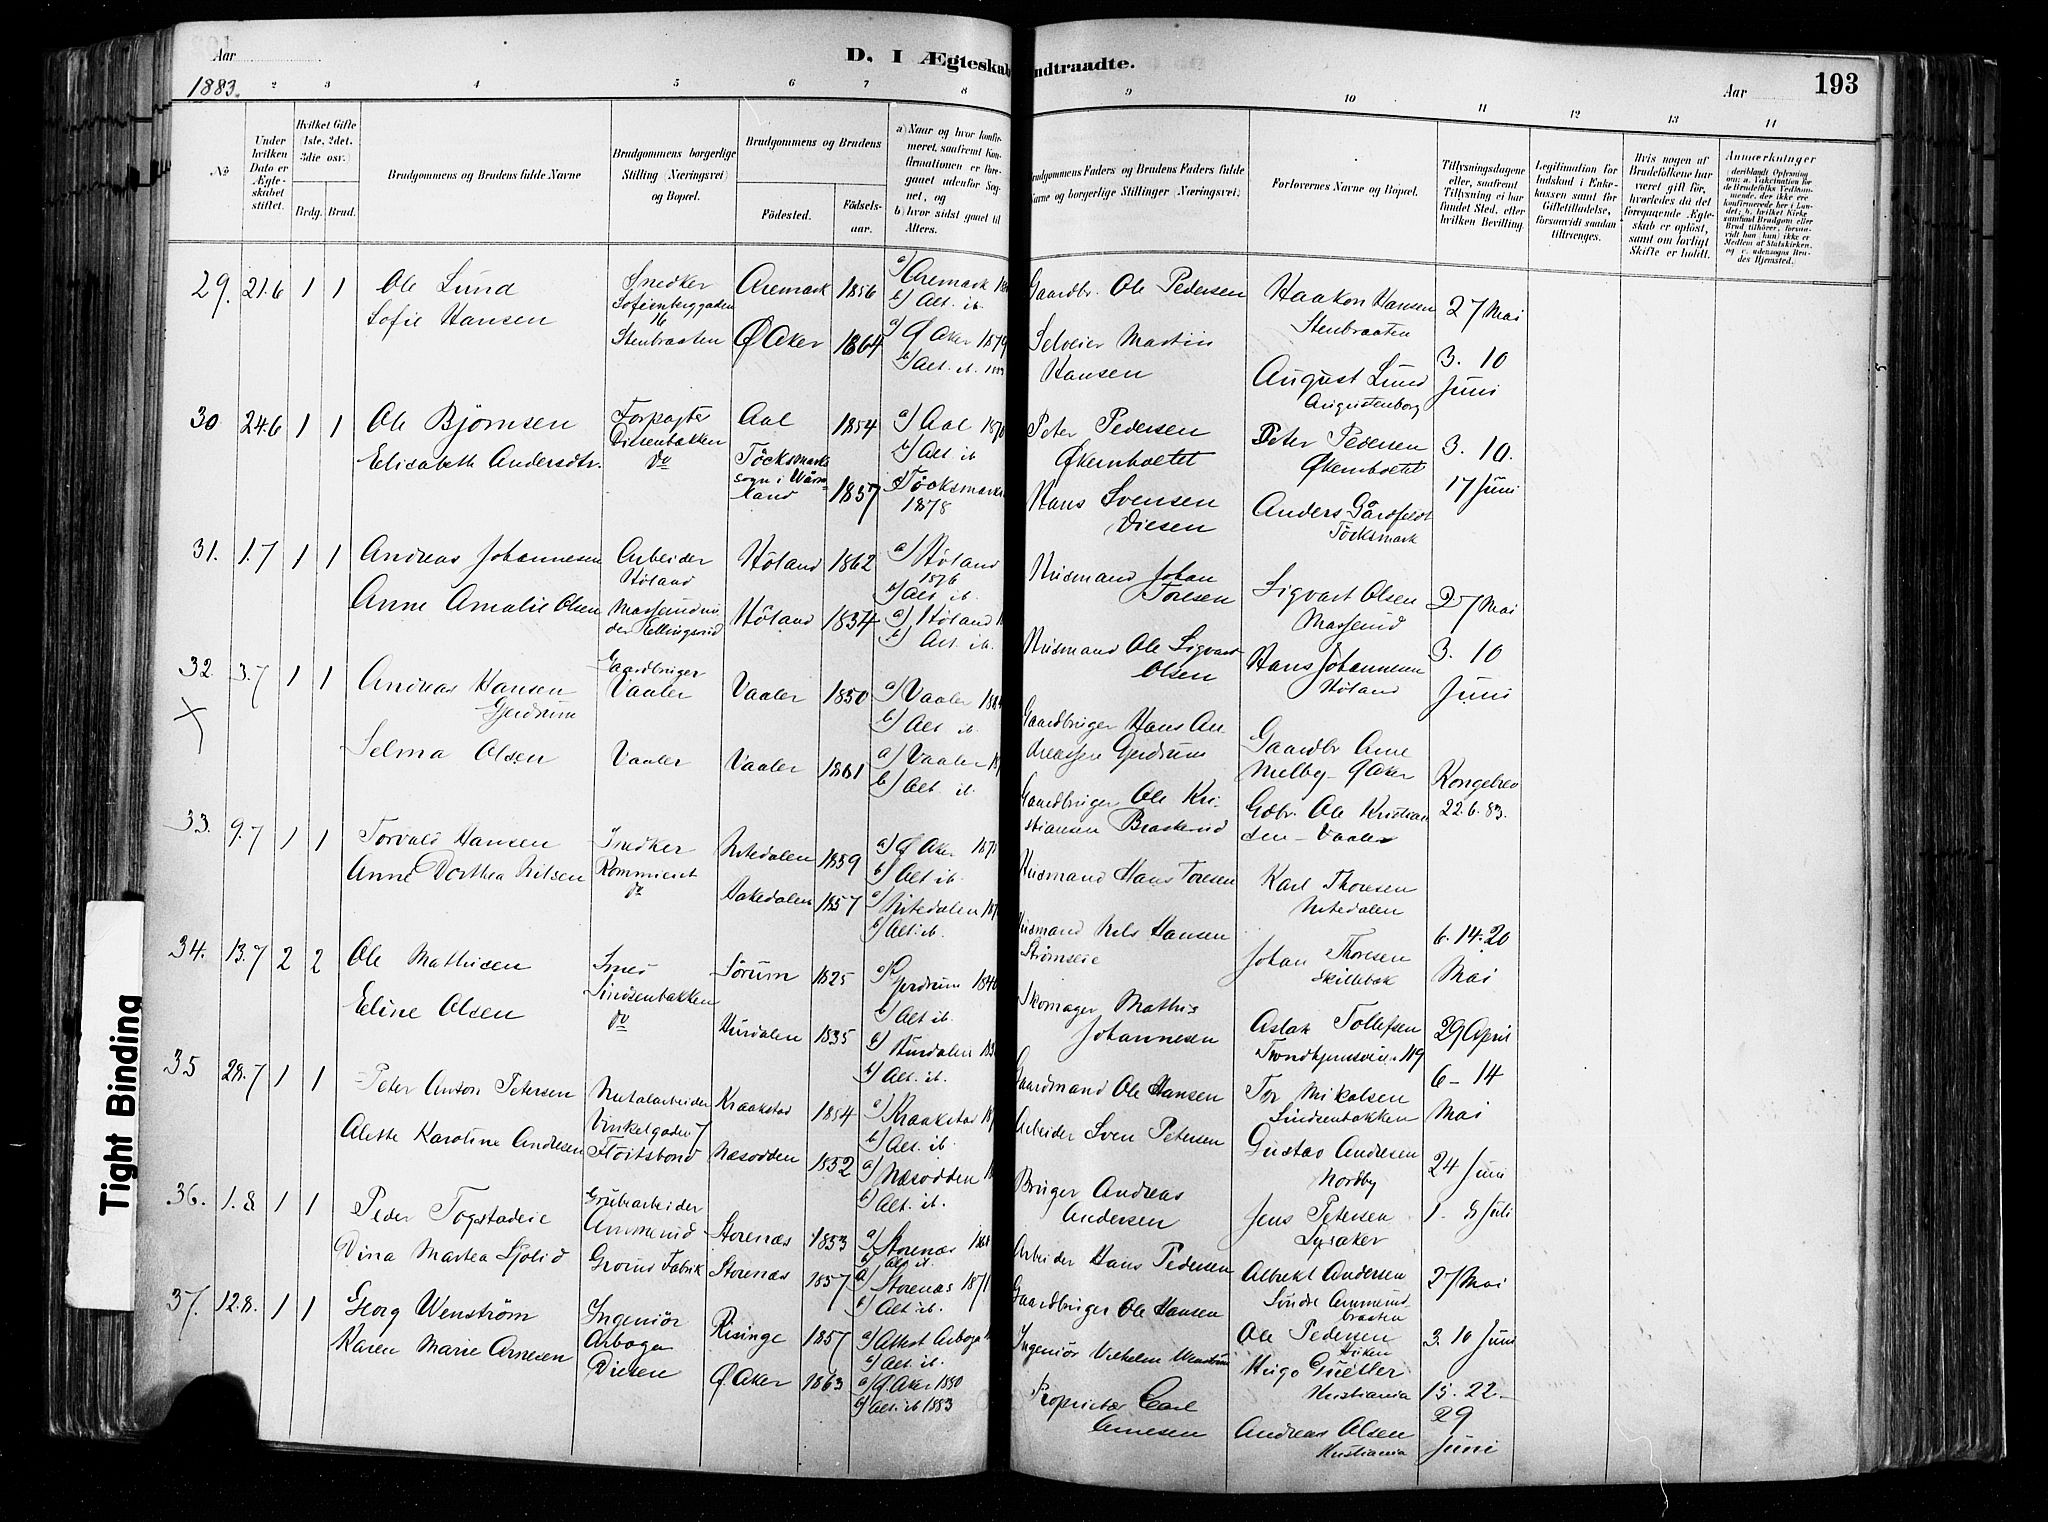 Aar
1883.
D. I Ægteskab
ndtraadte.
Aar
193
2 3 4 5 6 7 8 9 10 11 12 13 14
No
Under hvilken Dato er Ægteskabet stiftet.
Hvilket Gifte 1ste, 2det, 3die osv.
Brdg. Brud.
Brudgommens og Brudens fulde Navne
Brudgommens borgerlige Stilling (Næringsvei) og Bopæl.
Brudgommens og Brudens
Fødested.
Fødselsaar.
a) Naar og hvor konfirmeret, saafremt Konfirmationen er foregaaet udenfor Sognet, og
b) hvor sidst gaaet til Alters.
Brudgommens Faders og Brudens Faders fulde Navne og borgerlige Stillinger (Næringsvei.)
Forlovernes Navne og Bopæl.
Tillysningsdagene eller, saafremt Tillysning ei har fundet Sted, efter hvilken Bevilling.
Legitimation for Indskud i Enkekassen samt for Giftetilladelse, forsaavidt saadan tiltrænges.
Hvis nogen af Brudefolkene har været gift før, hvorledes da det foregaaende Ægteskab er opløst, samt om lovligt Skifte er holdt.
Anmærkninger
29. 21.6 1 1 Ole Lund Snedker Aremark 1856 a) Aremark
Sofienberggaden b) Alt. ib.
Sofie Hansen 16
Stenbraaten Ø Aker 1864 a) Ø Aker 1879
b) Alt. ib.
Gaardbr. Ole Pedersen Haakon Hansen 27 Mai
Stenbraaten
Selveier Martin 3. 10
Hansen August Lund Juni
Augustenborg
30 24.6 1 1 Ole Bjørnsen Forpagter Aal 1854 a) Aal
Disenbakken b) Alt. ib
Elisabeth Andersdtr. do Töcksmarks
sogn i Värm-
land 1857 Töcksmark
1878
Peter Pedersen Peter Pedersen 3. 10.
Økernboltet Økernboltet
17 Juni
Hans Svensen Anders Gårdfeldt
Diesen Töcksmark
31. 1.7 1 1 Andreas Johannesen Arbeider Høland 1862 a) Høland
Høland 1876
b) Alt ib.
Anne Amalie Olsen Høland 1834 a) Høland
b) Alt. ib.
Husmand Johan Sigvart Olsen 27 Mai
Toresen
Husmand Ole Sigvart Hans Johannesen 3. 10
Olsen Høland Juni
32 3.7 1 1 Andreas Hansen Gaardbruger
Gjerdrum Vaaler Vaaler 1850 a) Vaaler
b) Alt ib.
Selma Olsen Vaaler Vaaler 1861 a) Vaaler
b) Alt. ib.
Gaardbruger Hans An-
dreassen Gjerdrum Gaardbr Arne
Melby Ø Aker Kongebrev
Gaardbruger Ole Kri- Gdbr. Ole Kristian 22.6.83.
stiansen Braskerud sen - Vaaler
33. 9.7 1 1 Torvald Hansen Snedker Nitedalen 1859 a) Ø Aker
b) Alt ib.
Anne Dorthea Nilsen do Hakedalen 1857 a) Nitedalen
b) Alt. ib.
Husmand Hans Toresen Karl Thoresen
Nitedalen
Husmand Nils Hansen 6. 14. 20
Johan Thoresen Mai
Skillebæk
34. 13.7 2 2 Ole Mathisen Smed Sørum 1825 a) Gjerdrum 1840
Sinsenbakken b) Alt ib.
Eline Olsen do Hurdalen 1835 a) Hurdalen
b) Alt. ib.
Skomager Mathis
Johannesen Aslak Tollefsen 29 April
Trondhjemsveien 119
Gaardmand Ole Hansen Tor Mikalsen 6 - 14
Sindsenbakken Mai
35 28.7 1 1 Peter Anton Petersen Metalarbeider Kraakstad 1854 a) Kraakstad
Vinkelgaden 7 b) Alt. ib.
Alette Karoline Andresen Næsodden 1852 a) Næsodden
b) Alt. ib.
Arbeider Sven Petersen Gustav Andresen
Nordby 24 Juni
Bruger Andreas
Andersen Jens Petersen 1. 8 Juli
Lysaker
36. 1.8 1 1 Peder Togstadeie Grubearbeider
Ammerud Storenæs 1853 a) Storenæs
b) Alt ib.
Dina Martea Sjolid Grorud Fabrik Storenæs 1857 a) Storenæs 1871
b) Alt ib.
Arbeider Hans Pedersen Albrekt Andersen 27 Mai
Søndre Ammerud-
braaten
Gaardbruger Ole Hansen Ole Pedersen 3. 10 Juni
37. 12.8. 1 1 Georg Wenström Ingeniør Risinge 1857 a) Attest Arboga
Arboga b) Alt. ib.
Karen Marie Arnesen Diesen Ø. Aker 1863 a) Ø Aker 1880
b) Alt. ib 1883
Ingeniør Vilhelm Wenström Hugo
Kristiania 15. 22.-
29
Proprietær Carl
Arnesen Andreas Olsen Juni
Kristiania
Tight Binding